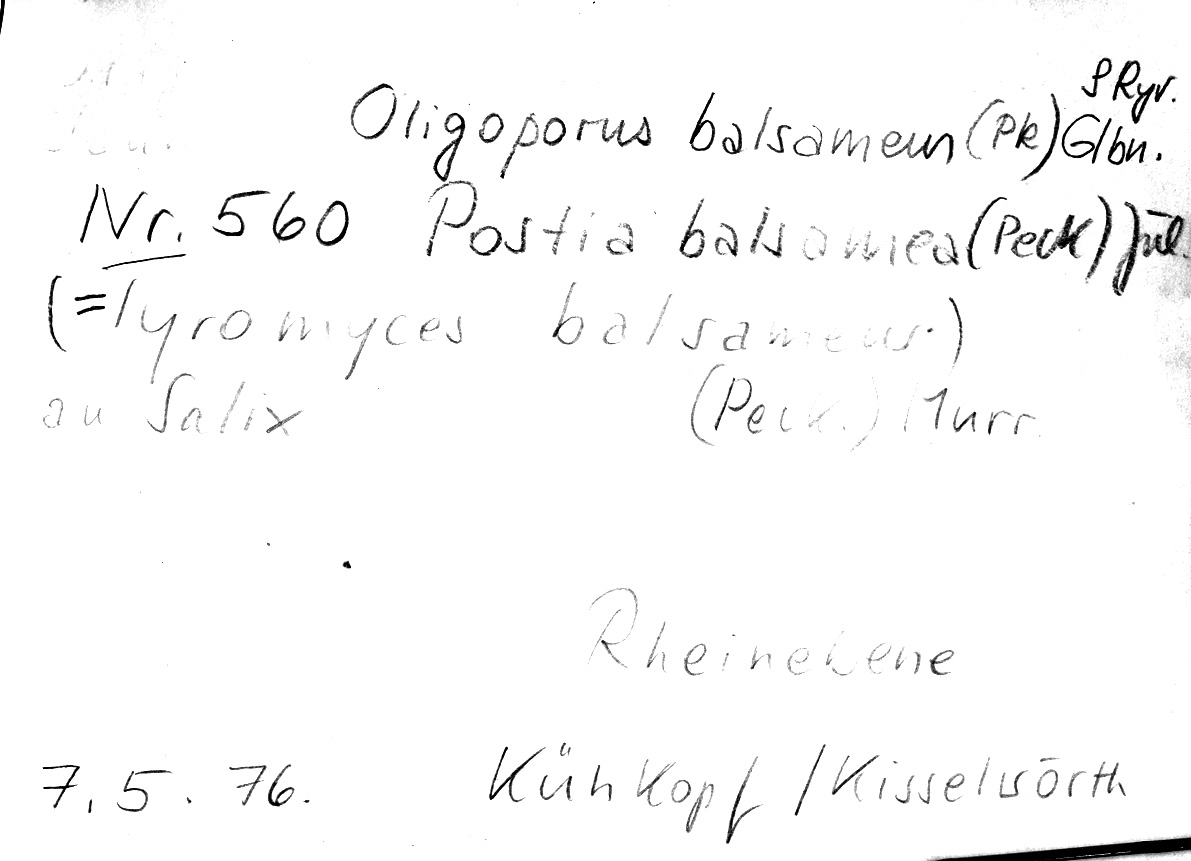 Oligoporus balsameus (Pk) Glbn. & Ryv.
Nr. 560 Postia balsamea (Peck) Jül.
(=Tyromyces balsameus.)
an Salix (Peck.) Murr.
Rheinebene
7.5.76. Kühkopf / Kisselwörth